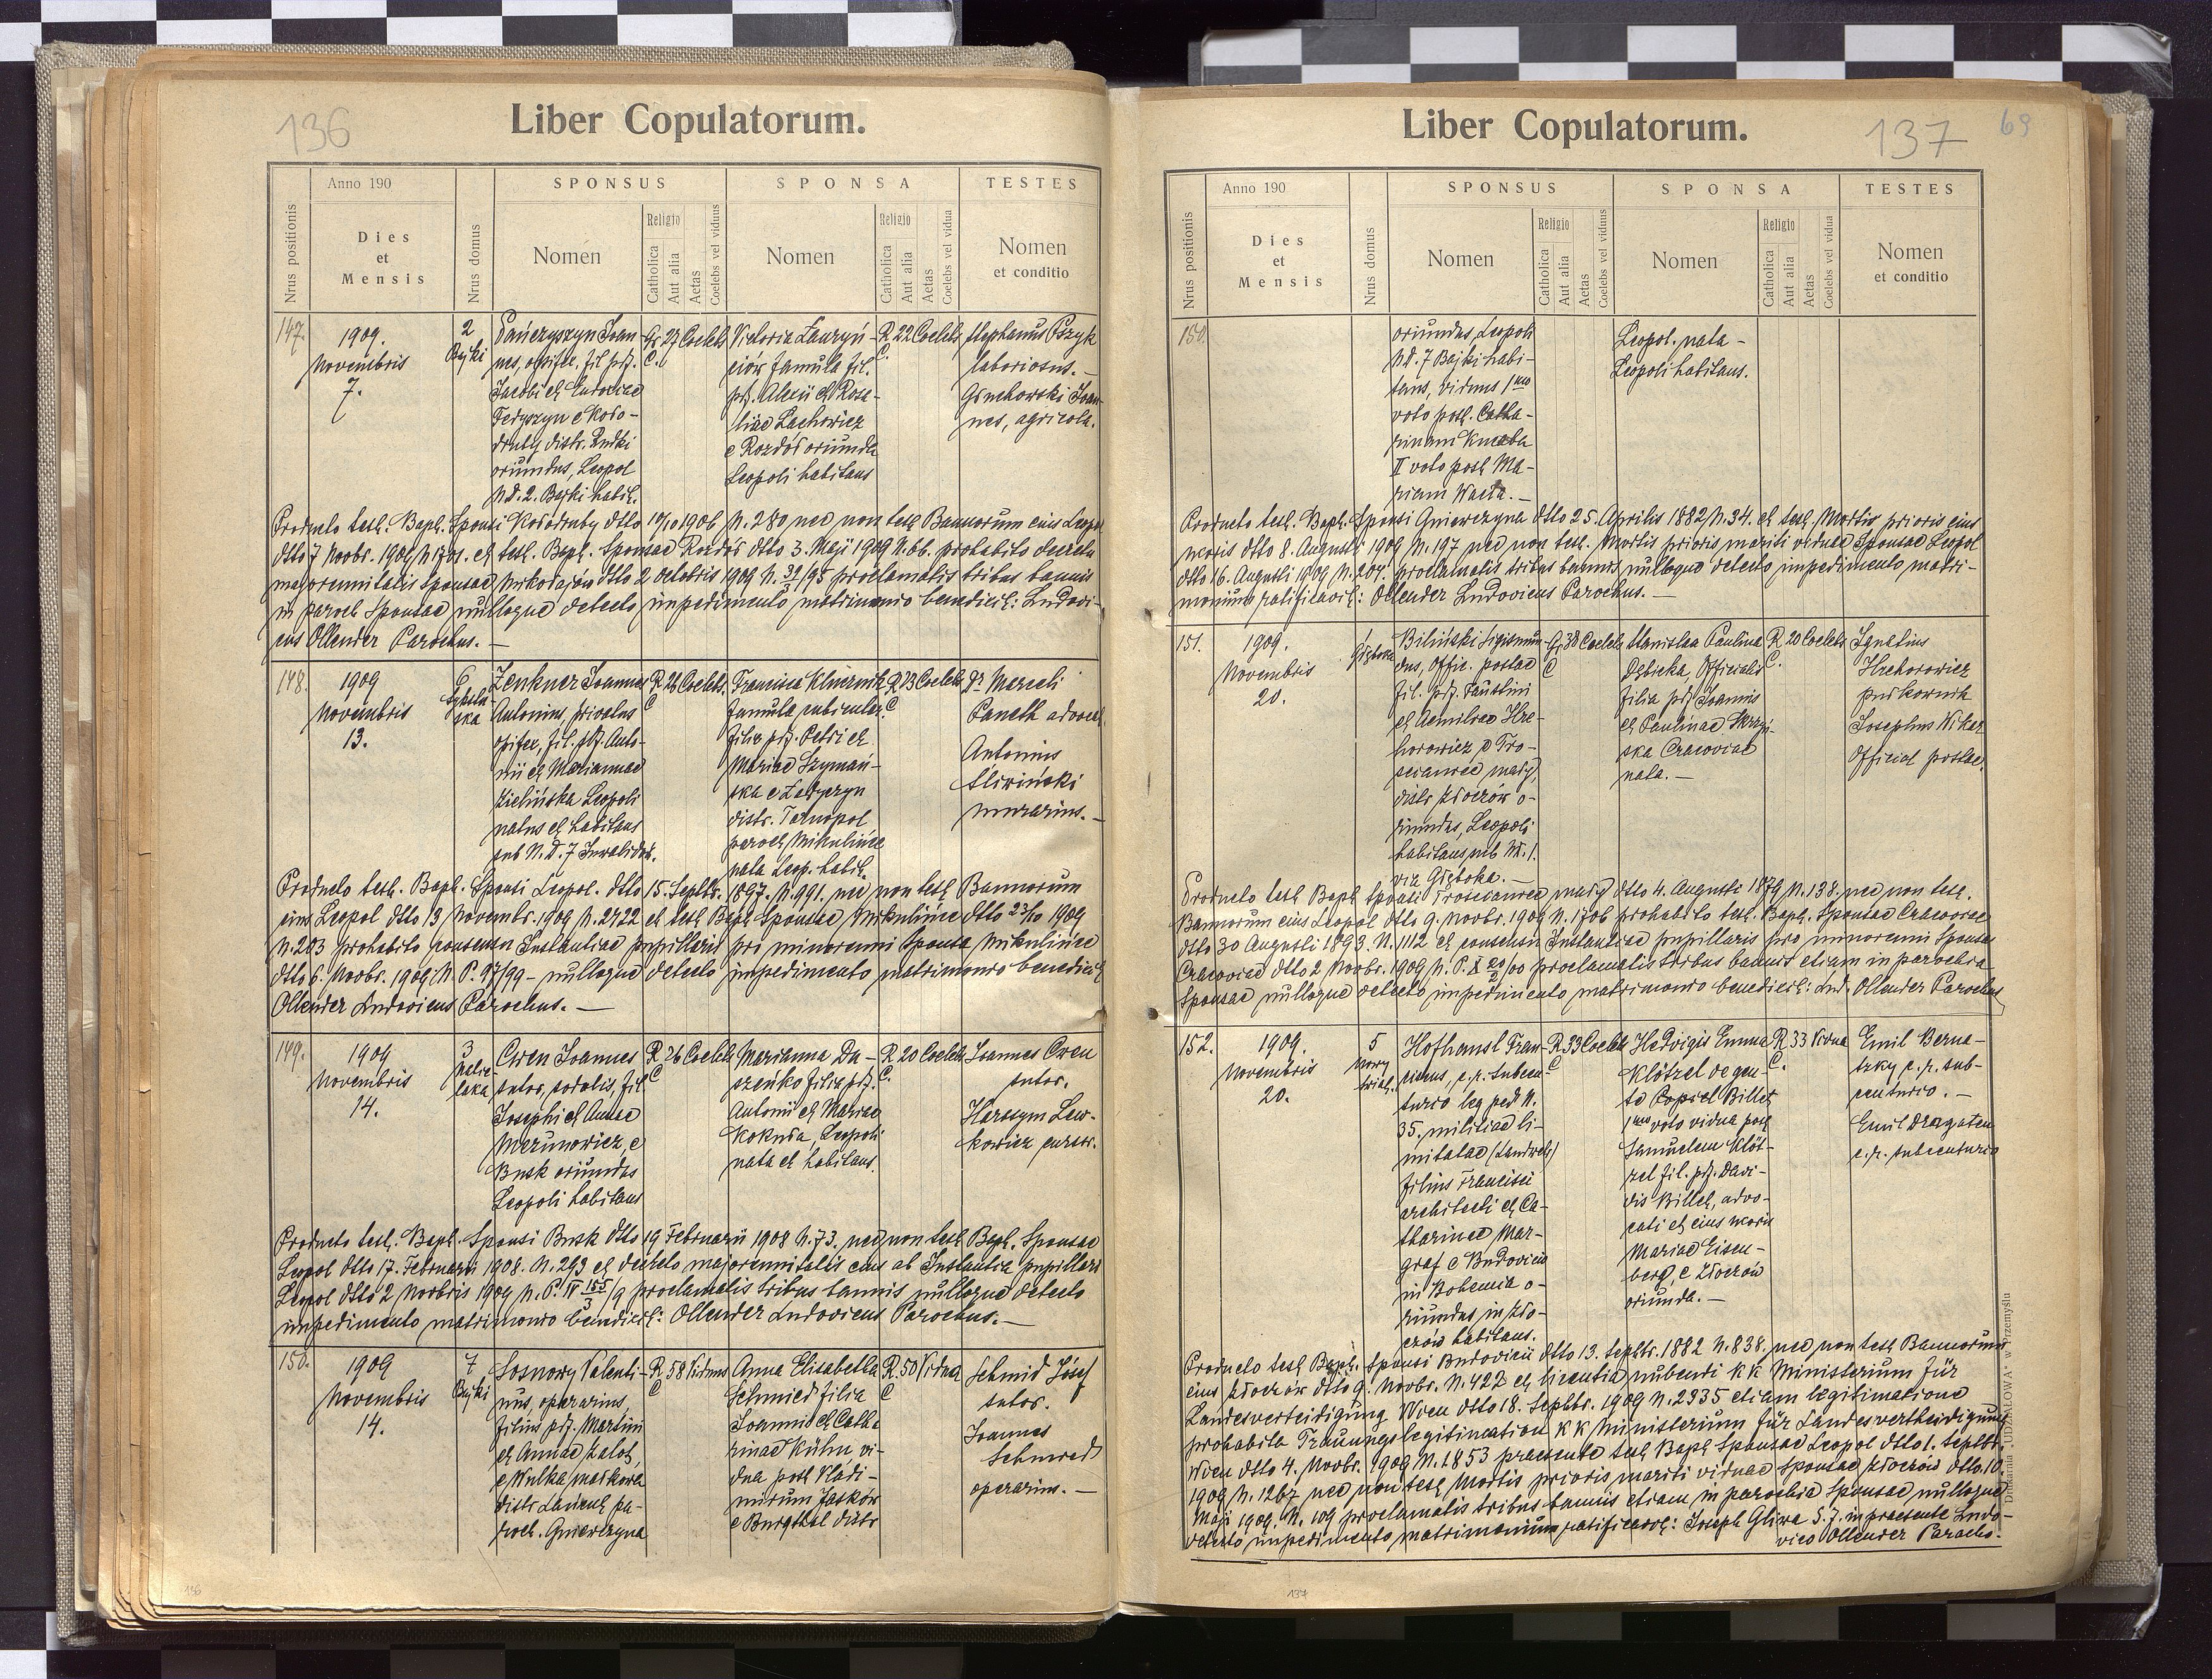 136
Liber Copulatorum.
Anno 190
SPONSUS
SPONSA
TESTES
Nrus positionis
Dies
et
Mensis
Nrus domus
Nomen
Religio
Catholica
Aut alia
Aetas
Coelebs vel viduus
Nomen
Religio
Catholica
Aut alia
Aetas
Coelebs vel vidua
Nomen
et conditio
147.
1909.
Novembris
7.
2
Bajki
Joan-
nes, opifex, fil. ptf.
Jacobi et Eudociae
Fedyszyn e Koło-
druby distr. Rudki
oriundus, Leopol
N.D. 2. Bajki habit.
Gr. 27 Coelebs
C.
Victoria Lauryn-
ców famula fil.
ptf. Alexii et Rosa-
liae Lachowicz
e Rozdół oriunda
Leopoli habitans
R. 22 Coelebs
C.
Stephanus Pszyk
laboriosus. —
Gruchowski Joan-
nes, agricola.
Producto test. Bapt. Sponsi Kołodruby dtto 10/10 1906 N. 280 nec non test Bannorum eius Leopol
dtto 7 Novbr. 1909 N. 1701. et test. Bapt. Sponsae Rozdół dtto 3. Maji 1909 N. 66. prohabito decreto
majorennitatis Sponsae Mikołajów dtto 2 Octobris 1909 proclamatis tribus bannis
in paroch Sponsae nulloque detecto impedimento matrimonio benedixit: Ludovi-
cus Ollender Parochus. —
148.
1909
Novembris
13.
6
Zenkner Joannes
Antonius, privatus
opifex, fil. ptf. Anto-
nii et Mariannae
Zielińska Leopoli
natus et habitans
sub N. D. 7 Inwalidów.
R. 26 Coelebs.
C
Francisca Klucznik
famula cubicular.
filia ptf. Petri et
Mariae Szymań-
ska e Ładyczyn
distr. Tarnopol
paroch Mikulińce
nata Leop. habit.
R 23 Coelebs
C
Dr Marceli
Paneth advocat
Antonius
Śliwiński
murarius. —
Producto test. Bapt. Sponsi Leopol. dtto 15. Septbr. 1897. N. 991. nec non test Bannorum
eius Leopol dtto 13 Novembr. 1909 N. 2722 et test Bapt Sponsae Mikulińce dtto 23/10 1909
N. 203 prohabito consensu Instantiae pupillaris pro minorenni Sponsa Mikulińce
dtto 6. Novbr. 1909, N. P. 97/99 — nulloque detecto impedimento matrimonio benedixit
Ollender Ludovicus Parochus. —
149.
1909
Novembris
14.
3
Owen Joannes
sutor, sodalis, fil
Josephi et Annae
Merunowicz, e
Busk oriundus
Leopoli habitans
R. 26 Coelebs
C
Marianna Du-
szeńko filia ptf.
Antonii et Mariae
Kokurda, Leopoli
nata et habitans.
R. 20 Coelebs
C.
Joannes Owen
sutor.
Harasym Lew-
kowicz
Producto test. Bapt. Sponsi Busk dtto 19 Februarii 1908 N. 73. nec non test Bapt. Sponsae
Leopol dtto 17. Februarii 1908. N. 293 et decreto majorennitatis eius ab Instantia pupillari
Leopol dtto 2 Novbris 1909 N. P. IV 155/3 /9 proclamatis tribus bannis nulloque detecto
impedimento matrimonio benedixit: Ollender Ludovicus Parochus. —
150.
1909
Novembris
14.
7
Bajki
Sosnowy Valenti-
nus, operarius,
filius ptf. Martini
et Annae
e Wulka małkowa
distr Łańcut pa-
roch. Gniewczyna
R 58 Viduus
C
Anna Elisabetha
Schmied filia
Joannis et Catha
rinae Kühn, vi-
dua post Vladi-
mirum Jasków
e Burgthal distr
R. 50 Vidua
C
Schmid Józef
sutor.
Joannes
Schmied
operarius. —
136
137
69
Liber Copulatorum.
Anno 190
SPONSUS
SPONSA
TESTES
Nrus positionis
Dies
et
Mensis
Nrus domus
Nomen
Religio
Catholica
Aut alia
Aetas
Coelebs vel viduus
Nomen
Religio
Catholica
Aut alia
Aetas
Coelebs vel vidua
Nomen
et conditio
150.
oriundus, Leopoli
N.D. 7 Bajki habi-
tans, Viduus 1mo
voto post. Catha-
rinam
II voto post Ma-
riam
Leopol. nata —
Leopoli habitans.
Producto test. Bapt. Sponsi Gniewczyna dtto 25. Aprilis 1882 N. 34. et test. Mortis prioris eius
uxoris dtto 8. Augusti 1909 N. 197 nec non test. Mortis prioris mariti viduae Sponsae Leopol
dtto 16. Augusti 1909 N. 204. proclamatis tribus bannis nulloque detecto impedimento matri-
monium ratificavit: Ollender Ludovicus Parochus. —
151.
1909.
Novembris
20.
Głęboka
Biliński Sigismun-
dus, Offic. postae
fil. ptf. Faustini
et Aemiliae Hre-
horowicz e Tro-
ścianiec mały
distr Złoczów o-
riundus, Leopoli
habitans sub N. 1.
via Głęboka. —
Gr. 38 Coelebs
C
Stanislaa Paulina
Dębicka, Officialis
filia ptf Joannis
et Paulinae
Cracoviae
nata. —
R. 20 Coelebs
C.
Ignatius
Hrehorowicz
pułkownik
Josephus
Official postae.
Producto test Bapt Sponsi Trościaniec mały dtto 4. Augusti 1879 N. 138. nec non test.
Bannorum eius Leopol dtto 9. Novbr. 1909 N. 1706 prohabito test. Bapt. Sponsae Cracoviae
dtto 30 Augusti 1893. N. 1112 et consensu Instantiae pupillaris pro minorenni Sponsae
Cracoviae dtto 2 Novbr. 1909 N. P. X proclamatis tribus bannis etiam in parochia
Sponsae nulloque detecto impedimento matrimonio benedixit: Lud. Ollender Parochus
152.
1909.
Novembris
20.
5
Hofhansl Fran-
ciscus, c. r. subcen-
turio leg ped N.
35, militiae li-
mitatae (Landwehr)
filius Francisci
architecti et Ca-
tharinae Mar-
graf e Budovicii
in Bohemia o-
riundus in Zło-
czów habitans.
R. 33 Coelebs
C
Hedvigis Emma
Klötzel de gen-
te Billet
1mo voto vidua post
Samuelem Klöt-
zel fil. ptf. Davi-
dis Billet, advo-
cati et eius uxoris
Mariae Eisen-
berg, e Złoczów
oriunda. —
R. 33 Vidua
C.
Emil Berna-
tzky c. r. sub-
centurio. —
Emil
c. r. subcenturio
Producto test Bapt. Sponsi Budovicii dtto 13. Septbr. 1882 N. 838. nec non test Bannorum
eius Złoczów dtto 9. Novbr. N. 427 et licentia nubendi KK Ministerium für
Landesverteidigung Wien dtto 18. Septbr. 1909 N. 2335 etiam legitimatione
prohabita Trauungslegitimation KK Ministerium für Landesvertheidigung
Wien dtto 4. Novbr. 1909 N. 1853 praesente test Bapt Sponsae Leopol dtto 1. Septbr.
1909 N. 1267 nec non test Mortis prioris mariti viduae Sponsae Złoczów dtto. 10.
Maji 1909 N. 109 proclamatis tribus bannis etiam in parochia Sponsae nulloque
detecto impedimento matrimonium ratificavit: Joseph Gliwa S. J. in praesente Ludo-
vico Ollender Parocho.
137